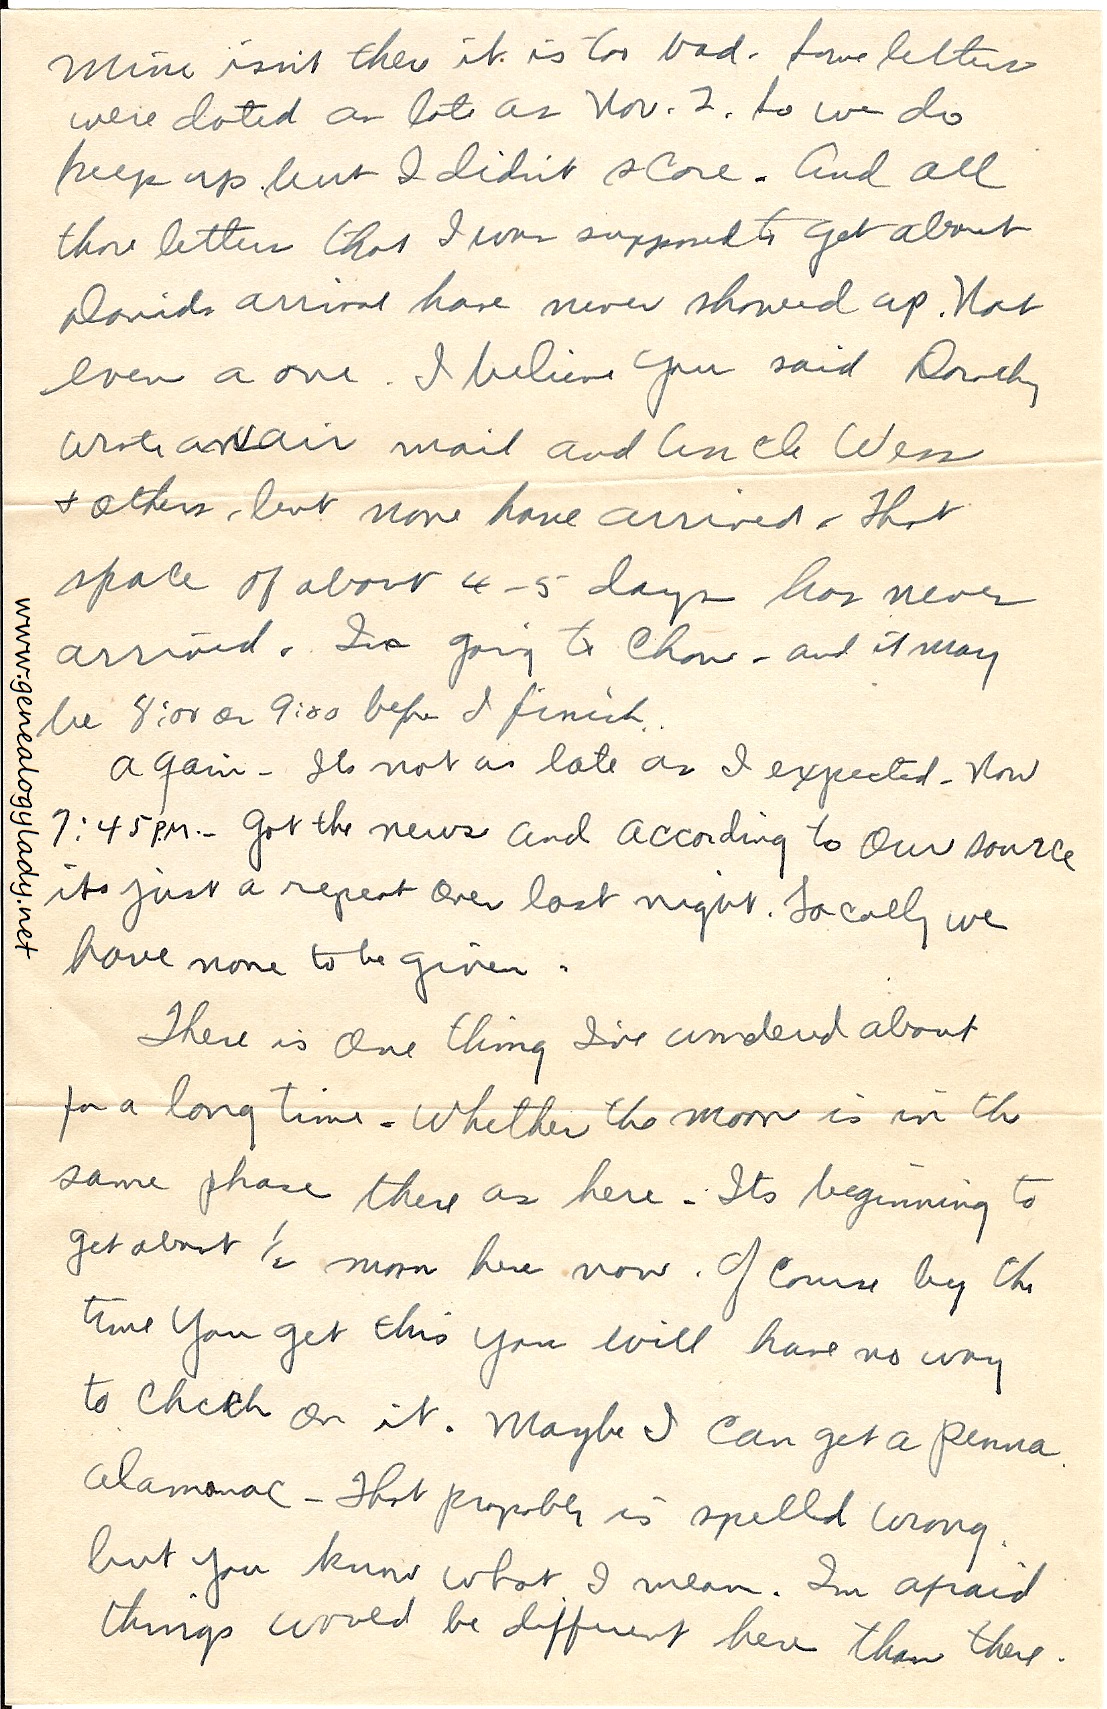 mine isn't then it is too bad. Some letters
were dated as late as Nov. 2. So we do
keep up but I didn't score. And all
those letters that I was supposed to get about
Davids arrival have never showed up. Not
even a one. I believe you said Dorothy
wrote an air mail and Uncle Wess
& others, but none have arrived. That
space of about 4-5 days has never
arrived. I'm going to chow - and it may
be 8:00 or 9:00 before I finish.
Again - Its not as late as I expected - Now
7:45 PM. - Got the news and according to our source
its just a repeat over last night. Locally we
have none to be given.
There is one thing I've wondered about
for a long time - Whether the moon is in the
same phase there as here - Its beginning to
get about 1/2 moon here now. Of course by the
time you get this you will have no way
to check on it. Maybe I can get a Penna.
alamonac - That propobly is spelld wrong,
but you know what I mean. I'm afraid
things would be different here than there.
www.genealogylady.net